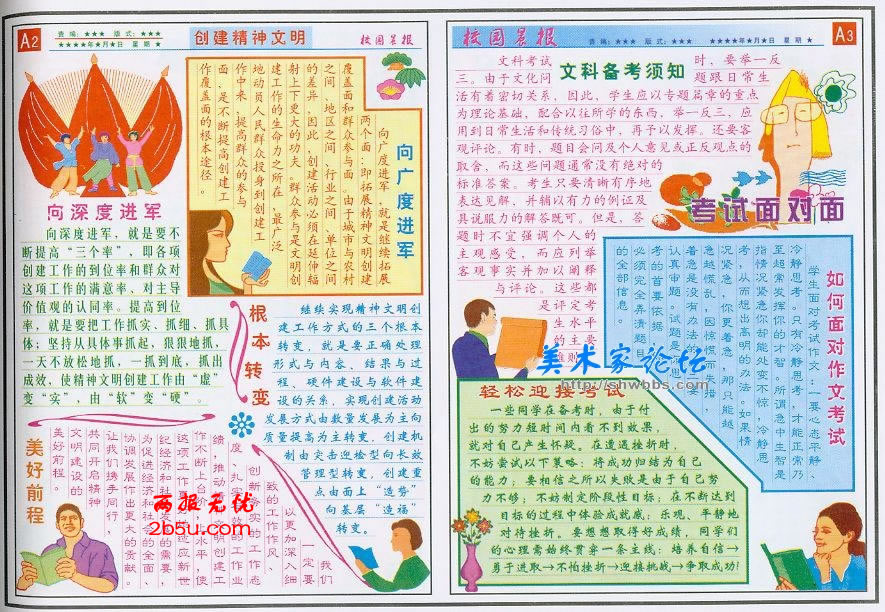 A2
责编:★★★ 版式:★★★
★★★★年★月★日 星期★
创建精神文明
校园晨报
向深度进军
向深度进军,就是要不
断提高“三个率”,即各项
创建工作的到位率和群众对
这项工作的满意率、对主导
价值观的认同率。提高到位
率,就是要把工作抓实、抓细、抓具
体;坚持从具体事抓起,狠狠地抓,
一天不放松地抓,一抓到底,抓出
成效,使精神文明创建工作由“虚”
变“实”,由“软”变“硬”。
向广度进军
向广度进军,就是继续拓展
两个面:即拓展精神文明创建
覆盖面和群众参与面。由于城市与农村
之间、地区之间、行业之间、单位之间
的差异,因此,创建活动必须在延伸辐
射上下更大的功夫。群众参与是文明创
建工作的生命力之所在,最广泛
地动员人民群众投身到创建工
作中来,提高群众的参与
面,是不断提高创建工
作覆盖面的根本途径。
根本转变
继续实现精神文明创
建工作方式的三个根本
转变,就是要正确处理
形式与内容、结果与过
程、硬件建设与软件建
设的关系,实现创建活动
发展方式由数量发展为主向
质量提高为主转变,创建机
制由突击迎检型向长效
管理型转变,创建重
点由面上“造势”
向基层“造福”
转变。
美好前程
我们
一定要
以更加深入细
致的工作作风、
创新务实的工作态
度、扎实
的工作业
绩,推动
作不断上台
水平,使
这项工作
适应新世
纪经济和社
的需要,
为促进经济和社
的全面、
协调发展作出更大的贡献。
让我们携手同行,
共同开启精神
文明建设的
美好前程。
两报无忧
2b5u.com
校园晨报
责编:★★★ 版式:★★★
★★★★年★月★日 星期★
A3
文科备考须知
文科考试时,要举一反
三。由于文化问题跟日常生
活有着密切关系,因此,学生应以专题篇章的重点
为理论基础,配合以往所学的东西,举一反三,应
用到日常生活和传统习俗中,再予以发挥。还要客
观评论。有时,题目会问及个人意见或正反观点的
取舍,而这些问题通常没有绝对的
标准答案。考生只要清晰有序地
表达见解,并辅以有力的例证及
具说服力的解答既可。但是,答
题时不宜强调个人的
主观感受,而应列举
客观事实并加以阐释
与评论。这些都
是评定考
生水平
的主
要准则。
考试面对面
如何面对作文考试
学生面对考试作文:一要心态平静
冷静思考。只有冷静思考,才能正常乃
至超常发挥你的才智。所谓急中生智是
指情况紧急你却能处变不惊,冷静思
考,从而想出高明的办法。如果情
况紧急,你更着急,那只能越
急越慌乱,因惊慌而
着急是没有办法的。二要
认真审题。试题是
考的首要依据,
必须完全弄清题目
的全部信息。
美术家论坛
http://shwbbs.com
轻松迎接考试
一些同学在备考时,由于付
出的努力短时间内看不到效果,
就对自己产生怀疑。在遭遇挫折时,
不妨尝试以下策略:将成功归结为自己
的能力;要相信之所以失败是由于自己努
力不够;不妨制定阶段性目标;在不断达到
目标的过程中体验成就感;乐观、平静地
对待挫折。要想想取得好成绩,同学们
的心理需始终贯穿一条主线:培养自信→
勇于进取→不怕挫折→迎接挑战→争取成功!